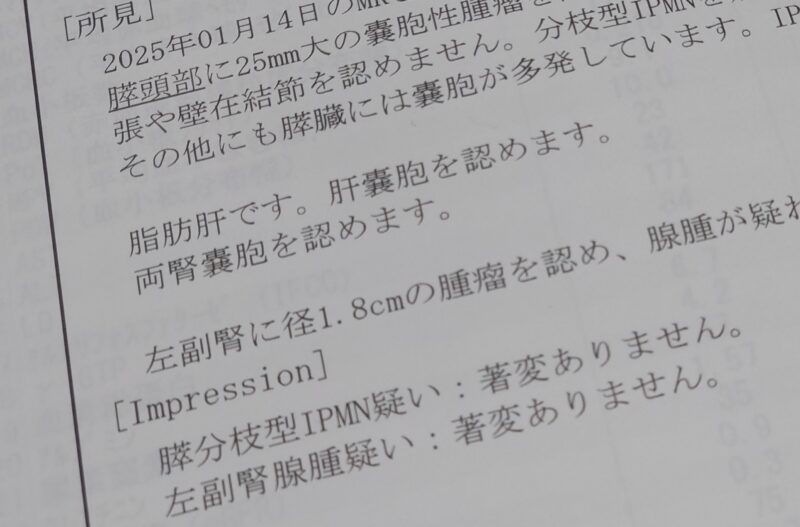 [所見]
2025年01月14日のMR
膵頭部に25mm大の嚢胞性腫瘤を
張や壁在結節を認めません。分枝型IPMNを
その他にも膵臓には嚢胞が多発しています。IP
脂肪肝です。肝嚢胞を認めます。
両腎嚢胞を認めます。
左副腎に径1.8cmの腫瘤を認め、腺腫が疑わ
[Impression]
膵分枝型IPMN疑い：著変ありません。
左副腎腺腫疑い：著変ありません。